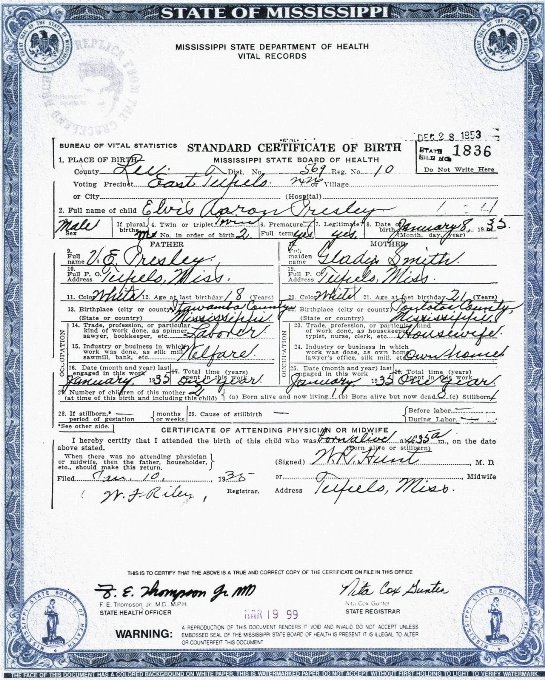 STATE OF MISSISSIPPI
MISSISSIPPI STATE DEPARTMENT OF HEALTH
VITAL RECORDS
DEC 28 1953
BUREAU OF VITAL STATISTICS STANDARD CERTIFICATE OF BIRTH STATE FILE NO. 1836
1. PLACE OF BIRTH MISSISSIPPI STATE BOARD OF HEALTH Do Not Write Here
County Lee Dist. No. 569 Reg. No. 10
Voting Precinct East Tupelo or Village
or City (Hospital)
2. Full name of child Elvis Aaron Presley
Male Sex If plural births 4. Twin or triplet Twin 6. Premature 7. Legitimate? 8. Date of birth January 8, 1935
No. in order of birth 2 Full term yes yes Month, day, year)
FATHER MOTHER
9. Full name V. E. Presley 18. Full maiden name Gladis Smith
10. Full P. O. Address Tupelo, Miss. 19. Full P. O. Address Tupelo, Miss
11. Color White 12. Age at last birthday 18 (Years) 20. Color White 21. Age at last birthday 21 (Years)
13. Birthplace (city or county) Itawamba County 22. Birthplace (city or county) Pontotoc County
(State or country) Mississippi (State or country) Mississippi
OCCUPATION
14. Trade, profession, or particular kind of work done, as spinner, sawyer, bookkeeper, etc. Laborer 23. Trade, profession, or particular kind of work done, as housekeeper, typist, nurse, clerk, etc. Housewife
15. Industry or business in which work was done, as silk mill, sawmill, bank, etc. Welfare 24. Industry or business in which work was done, as own home, lawyer's office, silk mill, etc. Own home
OCCUPATION
16. Date (month and year) last engaged in this work January 1935 17. Total time (years) spent in this work One year 25. Date (month and year) last engaged in this work January 1935 26. Total time (years) spent in this work One year
27. Number of children of this mother 2
(at time of this birth and including this child) (a) Born alive and now living 1 (b) Born alive but now dead (c) Stillborn 1
28. If stillborn, period of gestation months or weeks 29. Cause of stillbirth Before labor
During Labor
*See other side.
CERTIFICATE OF ATTENDING PHYSICIAN OR MIDWIFE
I hereby certify that I attended the birth of this child who was Born alive at 4:35 a m, on the date
above stated. (Born alive or stillborn)
When there was no attending physician or midwife, then the father, householder, etc., should make this return.
(Signed) W. R. Hunt M. D.
or Midwife
Filed Jan. 10, 1935 Address Tupelo, Miss.
W. J. Riley, Registrar.
THIS IS TO CERTIFY THAT THE ABOVE IS A TRUE AND CORRECT COPY OF THE CERTIFICATE ON FILE IN THIS OFFICE
F. E. Thompson Jr MD
Nita Cox Gunter
F. E. Thompson, Jr. M.D., M.P.H.
STATE HEALTH OFFICER
MAR 19 99
Nita Cox Gunter
STATE REGISTRAR
WARNING: A REPRODUCTION OF THIS DOCUMENT RENDERS IT VOID AND INVALID. DO NOT ACCEPT UNLESS
EMBOSSED SEAL OF THE MISSISSIPPI STATE BOARD OF HEALTH IS PRESENT. IT IS ILLEGAL TO ALTER
OR COUNTERFEIT THIS DOCUMENT.
THE FACE OF THIS DOCUMENT HAS A COLORED BACKGROUND ON WHITE PAPER. THIS IS WATERMARKED PAPER. DO NOT ACCEPT WITHOUT FIRST HOLDING TO LIGHT TO VERIFY WATERMARK.